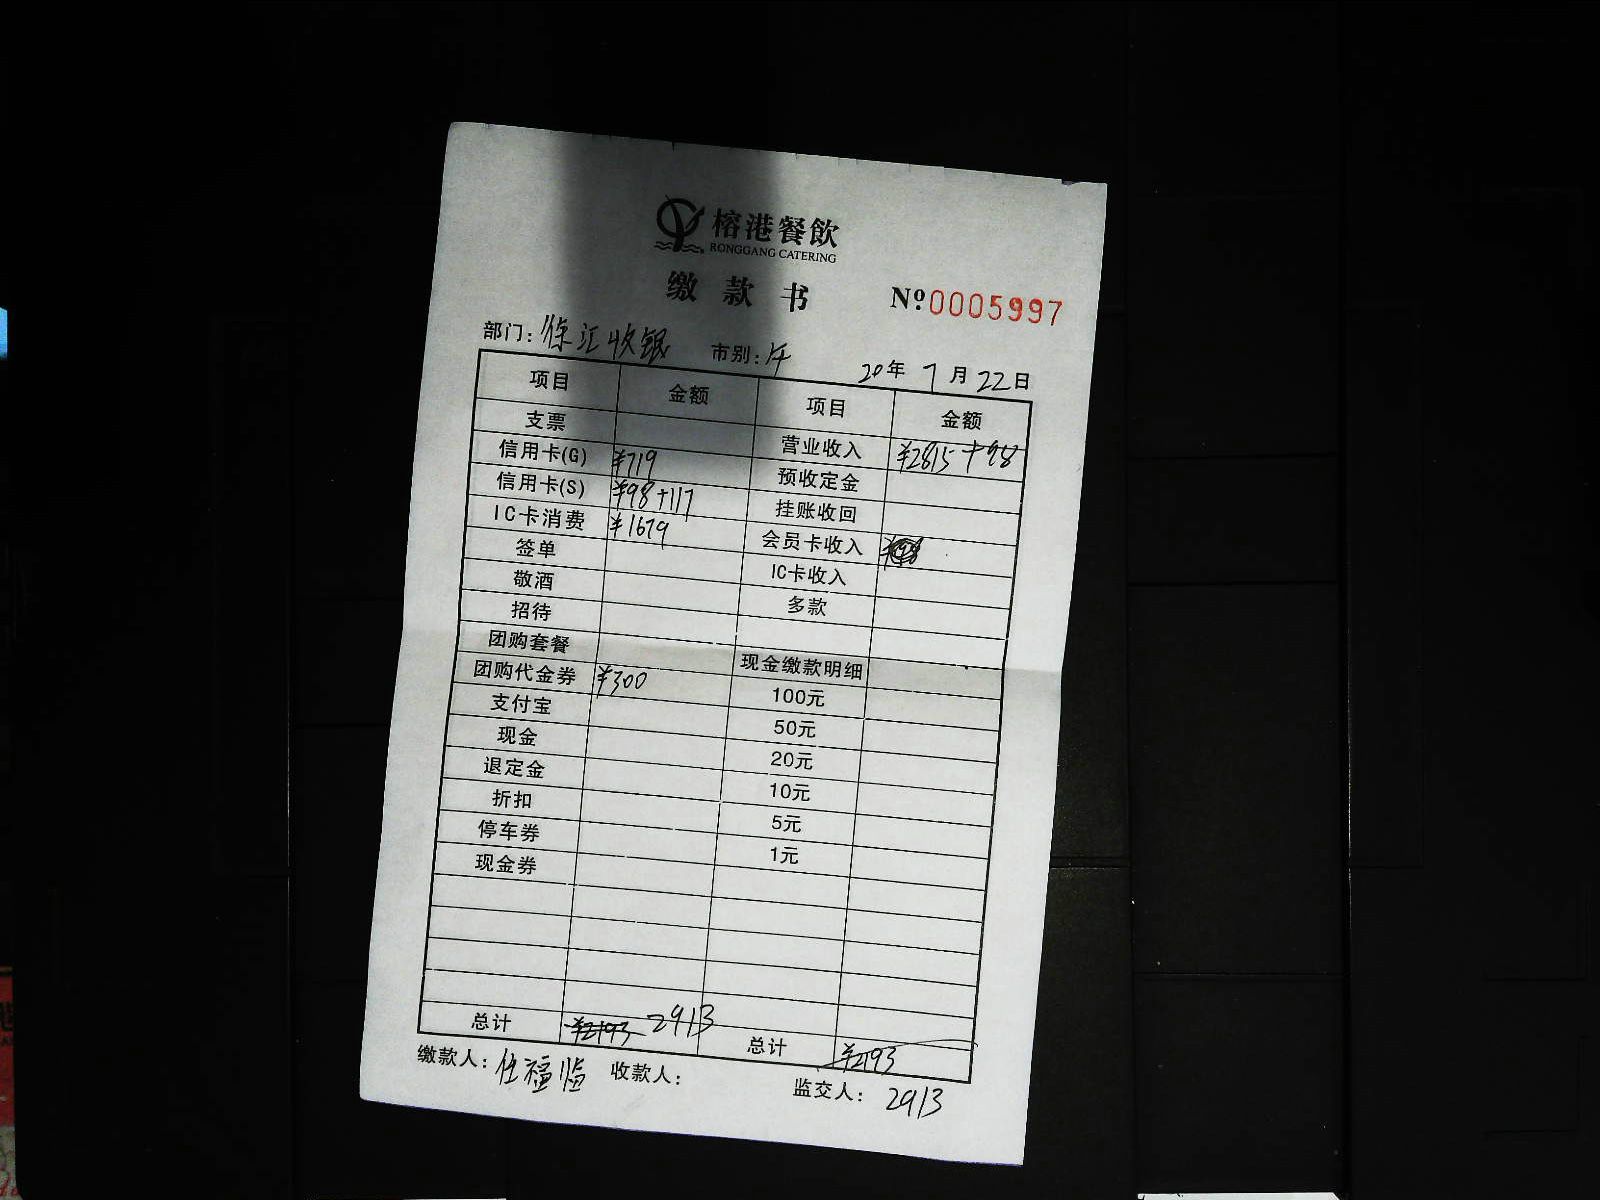 榕港餐飲
RONGGANG CATERING
缴款书 Nº 0005997
部门: 徐汇收银 市别: 午 20年 7月 22日
项目 金额 项目 金额
支票 营业收入 ¥2815+98
信用卡(G) ¥719 预收定金
信用卡(S) ¥98+117 挂账收回
IC卡消费 ¥1679 会员卡收入
签单 IC卡收入
敬酒 多款
招待
团购套餐 现金缴款明细
团购代金券 ¥300 100元
支付宝 50元
现金 20元
退定金 10元
折扣 5元
停车券 1元
现金券
总计 ¥2193 2913 总计 ¥2193
缴款人: 任福临 收款人: 监交人: 2913